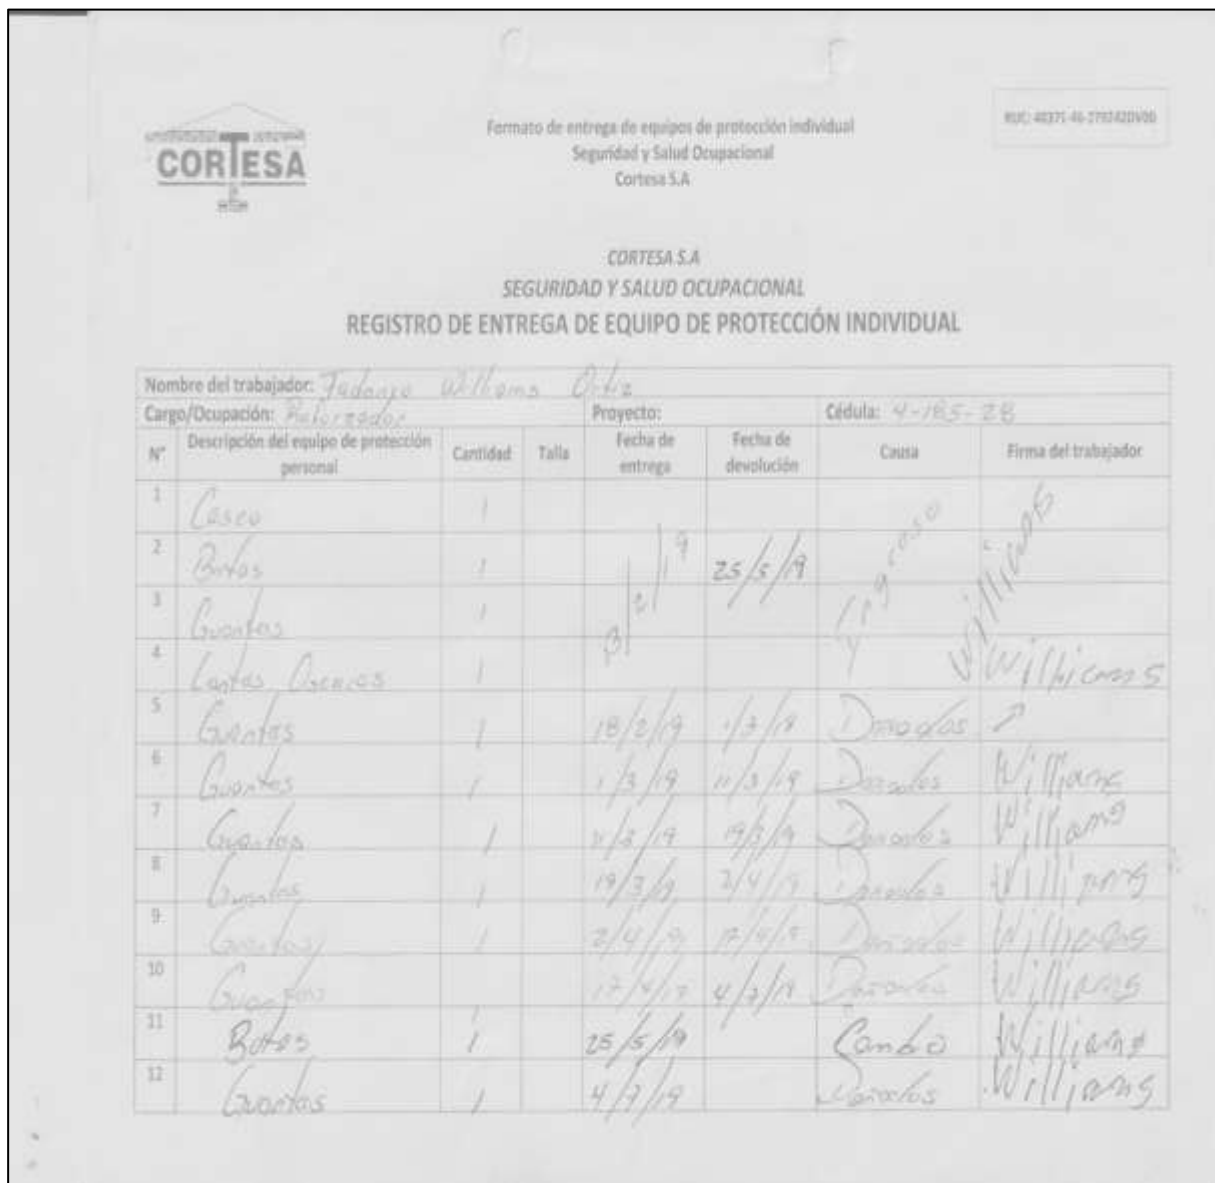 CORTESA
Formato de entrega de equipos de protección individual
Seguridad y Salud Ocupacional
Cortesa S.A
CORTESA S.A
SEGURIDAD Y SALUD OCUPACIONAL
REGISTRO DE ENTREGA DE EQUIPO DE PROTECCIÓN INDIVIDUAL
Nombre del trabajador: Williams Ortiz
Cargo/Ocupación: Reforzador Proyecto: Cédula: 4-185-28
N° Descripción del equipo de protección personal Cantidad Talla Fecha de entrega Fecha de devolución Causa Firma del trabajador
1 Casco 1
2 Botas 1 25/5/19
3 Guantes 1
4 Lentes Oscuros 1 Williams
5 Guantes 1 18/2/19 1/3/19 Dañados
6 Guantes 1 1/3/19 11/3/19 Dañados Williams
7 Guantes 1 11/3/19 19/3/19 Dañados Williams
8 Guantes 1 19/3/19 2/4/19 Dañados Williams
9 Guantes 1 2/4/19 17/4/19 Dañados Williams
10 Guantes 1 17/4/19 4/7/19 Dañados Williams
11 Botas 1 25/5/19 Cambio Williams
12 Guantes 1 4/7/19 Dañados Williams